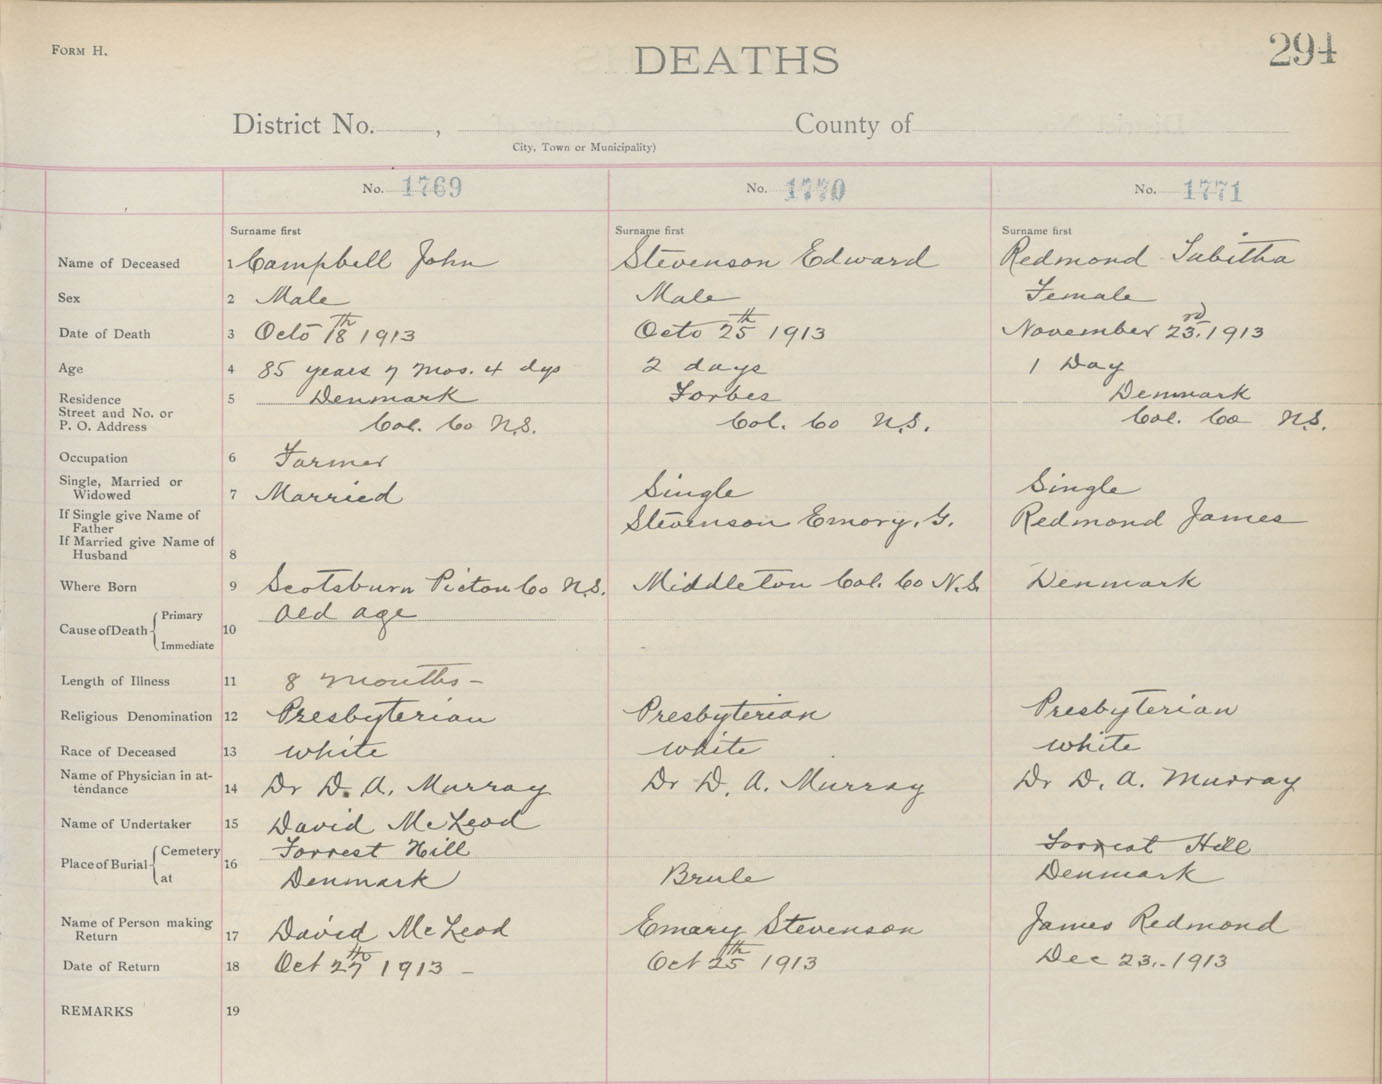 FORM H.
DEATHS
294
District No. , County of
City, Town or Municipality)
No. 1769 No. 1770 No. 1771
Surname first Surname first Surname first
Name of Deceased 1 Campbell John Stevenson Edward Redmond Tabitha
Sex 2 Male Male Female
Date of Death 3 Octo 18th 1913 Octo 25th 1913 November 23rd, 1913
Age 4 85 years 7 mos. 4 dys 2 days 1 Day
Residence 5 Denmark Forbes Denmark
Street and No. or
P. O. Address Col. Co N.S. Col. Co N.S. Col. Co N.S.
Occupation 6 Farmer
Single, Married or
Widowed 7 Married Single Single
If Single give Name of
Father Stevenson Emory, G. Redmond James
If Married give Name of
Husband 8
Where Born 9 Scotsburn Picton Co N.S. Middleton Col. Co N.S. Denmark
Cause of Death Primary Old age
10
Immediate
Length of Illness 11 8 months -
Religious Denomination 12 Presbyterian Presbyterian Presbyterian
Race of Deceased 13 white white white
Name of Physician in at-
tendance 14 Dr D. A. Murray Dr D. A. Murray Dr D. A. Murray
Name of Undertaker 15 David McLeod
Place of Burial Cemetery 16 Forrest Hill Forrest Hill
at Denmark Brule Denmark
Name of Person making
Return 17 David McLeod Emary Stevenson James Redmond
Date of Return 18 Oct 27th 1913 - Oct 25th 1913 Dec 23.-1913
REMARKS 19